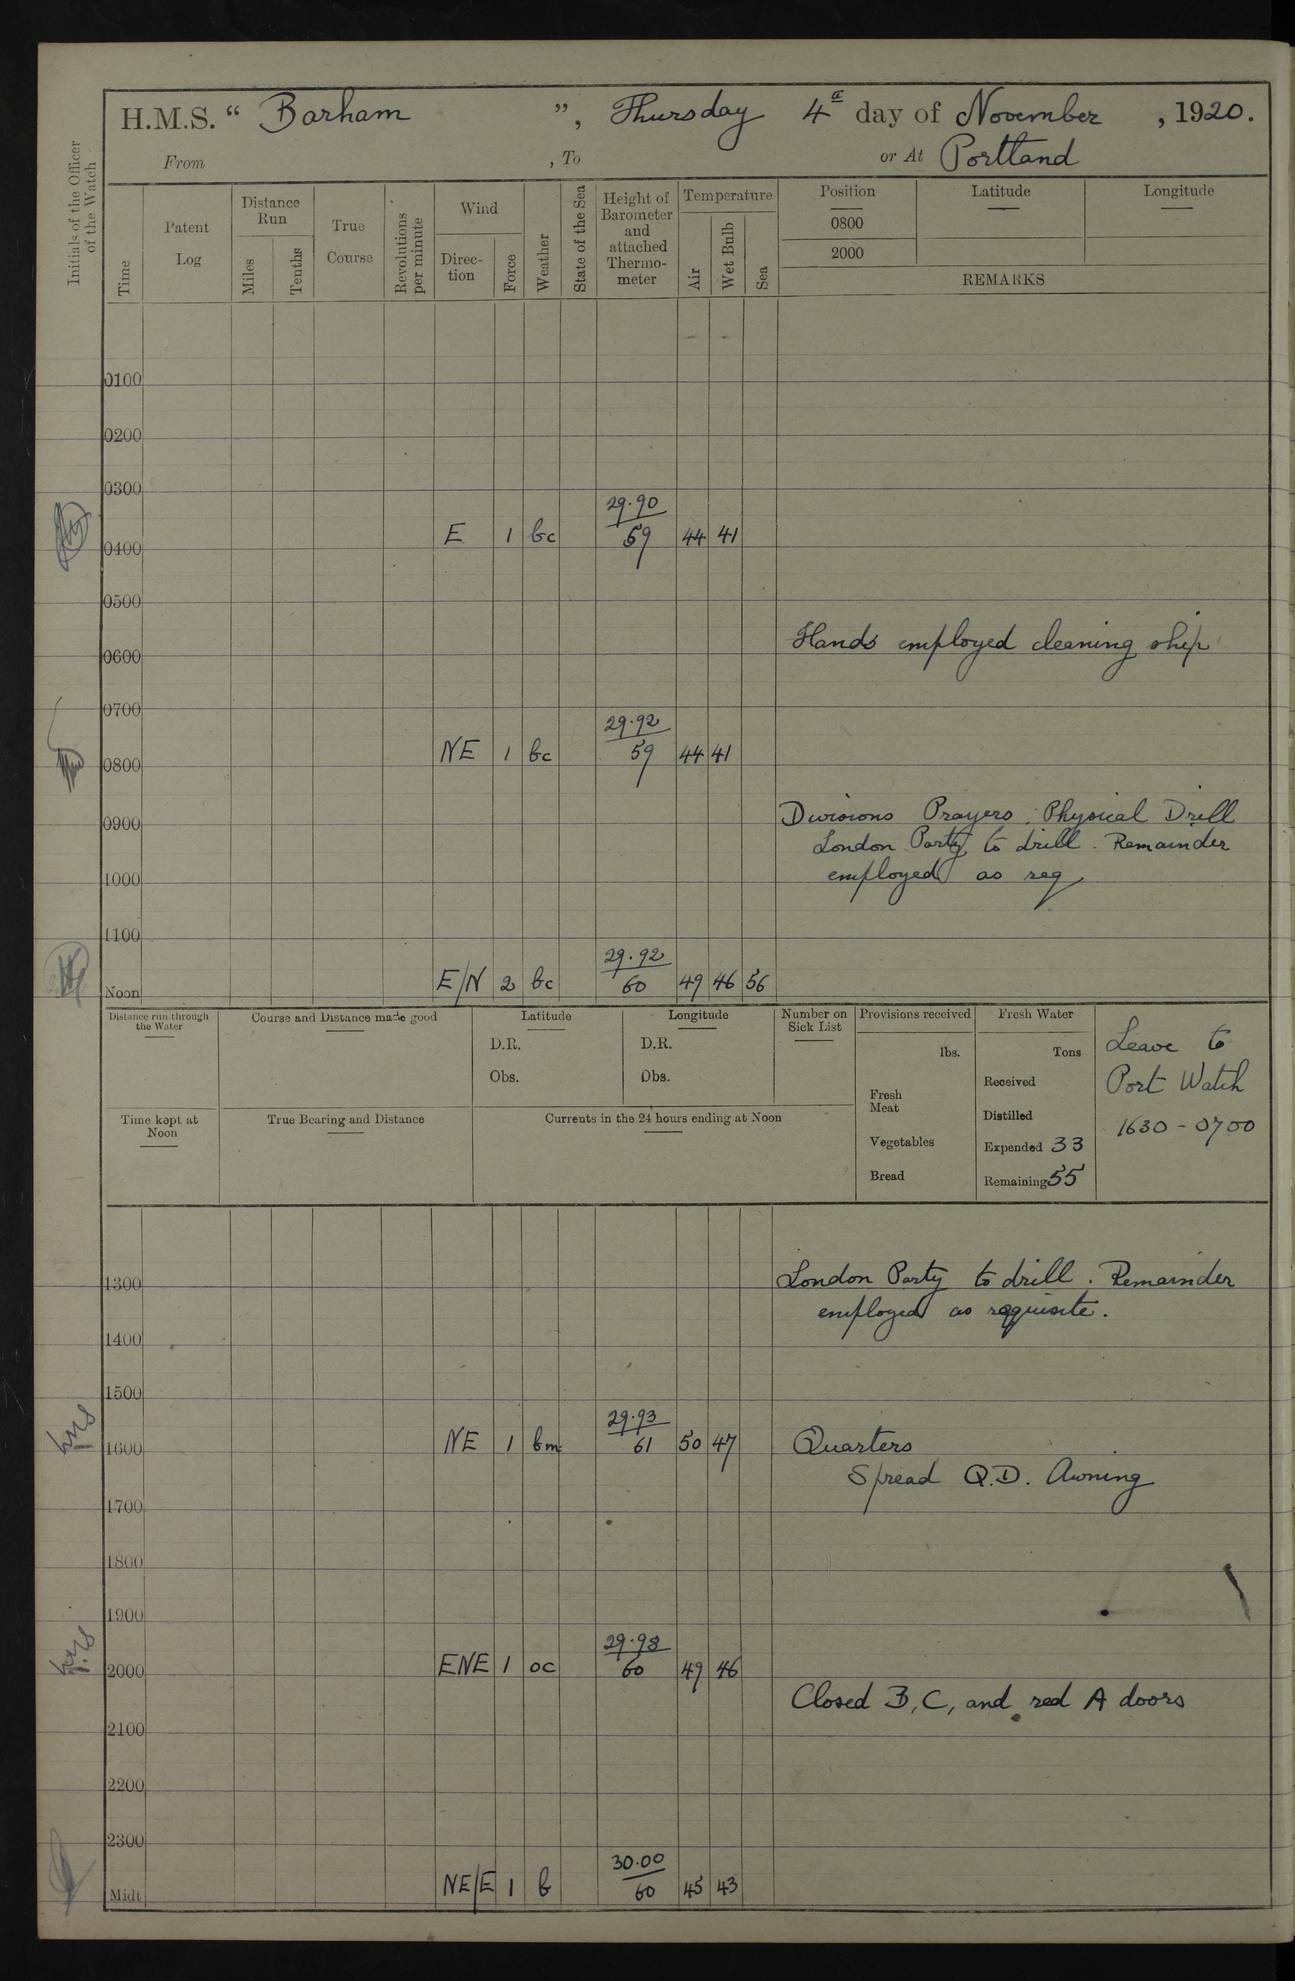 H.M.S. “ Barham ”, Thursday 4th day of November , 1920.
From , To or At Portland
Initials of the Officer of the Watch
Time
Patent Log
Distance Run
Miles
Tenths
True Course
Revolutions per minute
Wind
Direc-tion
Force
Weather
State of the Sea
Height of Barometer and attached Thermo-meter
Temperature
Air
Wet Bulb
Sea
Position Latitude Longitude
0800
2000
REMARKS
0100
0200
0300
29.90
0400 E 1 bc 59 44 41
0500
Hands employed cleaning ship
0600
0700
29.92
0800 NE 1 bc 59 44 41
Divisions Prayers. Physical Drill
0900
London Party to drill. Remainder
employed as req
1000
1100
29.92
Noon E/N 2 bc 60 49 46 56
Distance run through the Water
Course and Distance made good
Latitude
D.R.
Obs.
Longitude
D.R.
Obs.
Number on Sick List
Provisions received
lbs.
Fresh Meat
Vegetables
Bread
Fresh Water
Tons
Received
Distilled
Expended 33
Remaining 55
Leave to
Port Watch
1630 - 0700
Time kept at Noon
True Bearing and Distance
Currents in the 24 hours ending at Noon
1300 London Party to drill. Remainder
employed as requisite.
1400
1500
29.93
1600 NE 1 bm 61 50 47 Quarters
Spread Q.D. Awning
1700
1800
1900
29.98
2000 ENE 1 oc 60 49 46
Closed B, C, and red A doors
2100
2200
2300
30.00
Midt NE/E 1 b 60 45 43